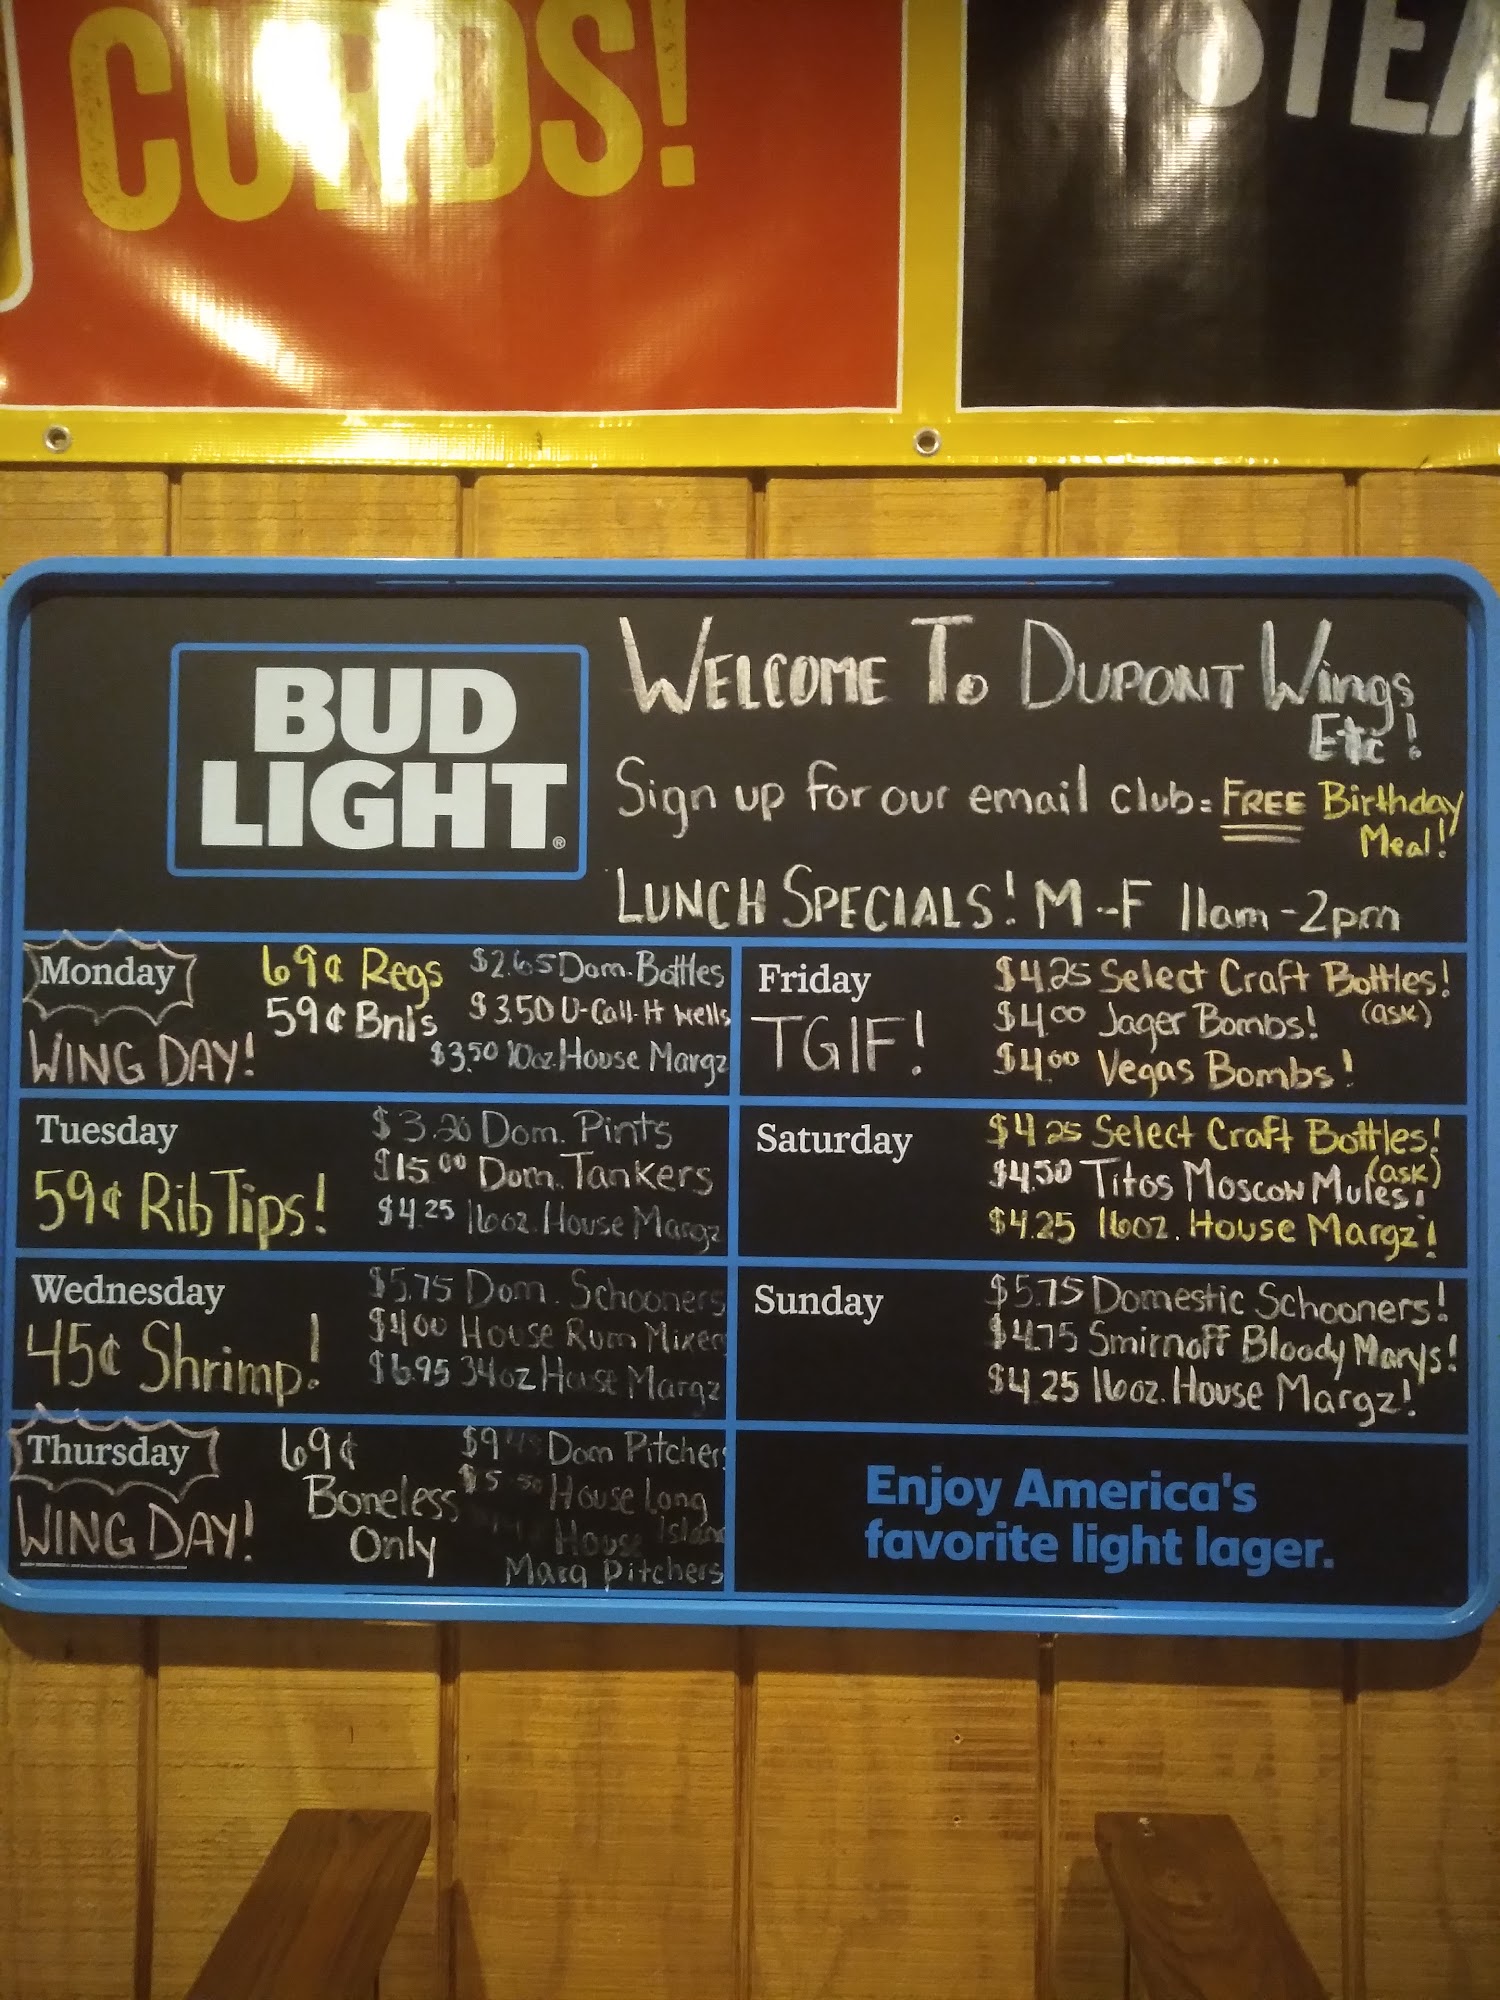 CURDS!
STEA
BUD
LIGHT®
WELCOME To DUPONT Wings
Etc!
Sign up for our email club = FREE Birthday
Meal!
LUNCH SPECIALS! M-F 11am-2pm
Monday
WING DAY!
69¢ Regs
59¢ Bnls
$2.65 Dom. Bottles
$3.50 U-Call-It Wells
$3.50 10oz. House Margz
Tuesday
59¢ Rib Tips!
$3.20 Dom. Pints
$15.00 Dom. Tankers
$4.25 16oz. House Margz
Wednesday
45¢ Shrimp!
$5.75 Dom. Schooners
$4.00 House Rum Mixers
$6.95 34oz House Margz
Thursday
WING DAY!
69¢
Boneless
Only
$9 Dom Pitchers
$5.50 House Long
Island
House
Marg Pitchers
Friday
TGIF!
$4.25 Select Craft Bottles!
(ask)
$4.00 Jager Bombs!
$4.00 Vegas Bombs!
Saturday
$4.25 Select Craft Bottles!
(ask)
$4.50 Titos Moscow Mules!
$4.25 16oz. House Margz!
Sunday
$5.75 Domestic Schooners!
$4.75 Smirnoff Bloody Marys!
$4.25 16oz. House Margz!
Enjoy America's
favorite light lager.